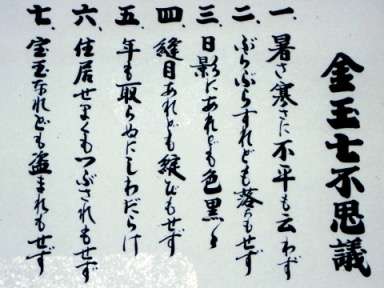 金玉七不思議
一、暑さ寒さに不平も云わず
二、ぶらぶらすれども落ちもせず
三、日影にあれども色黒く
四、縫目あれども綻びもせず
五、年も取らぬにしわだらけ
六、住居せまくもつぶされもせず
七、宝玉なれども盗まれもせず